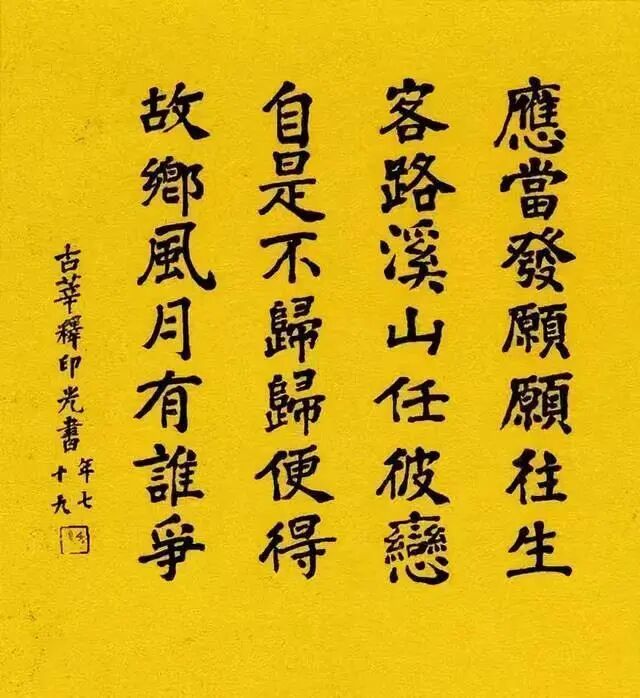 應當發願願往生
客路溪山任彼戀
自是不歸歸便得
故鄉風月有誰爭
古莘釋印光書
年七
十九